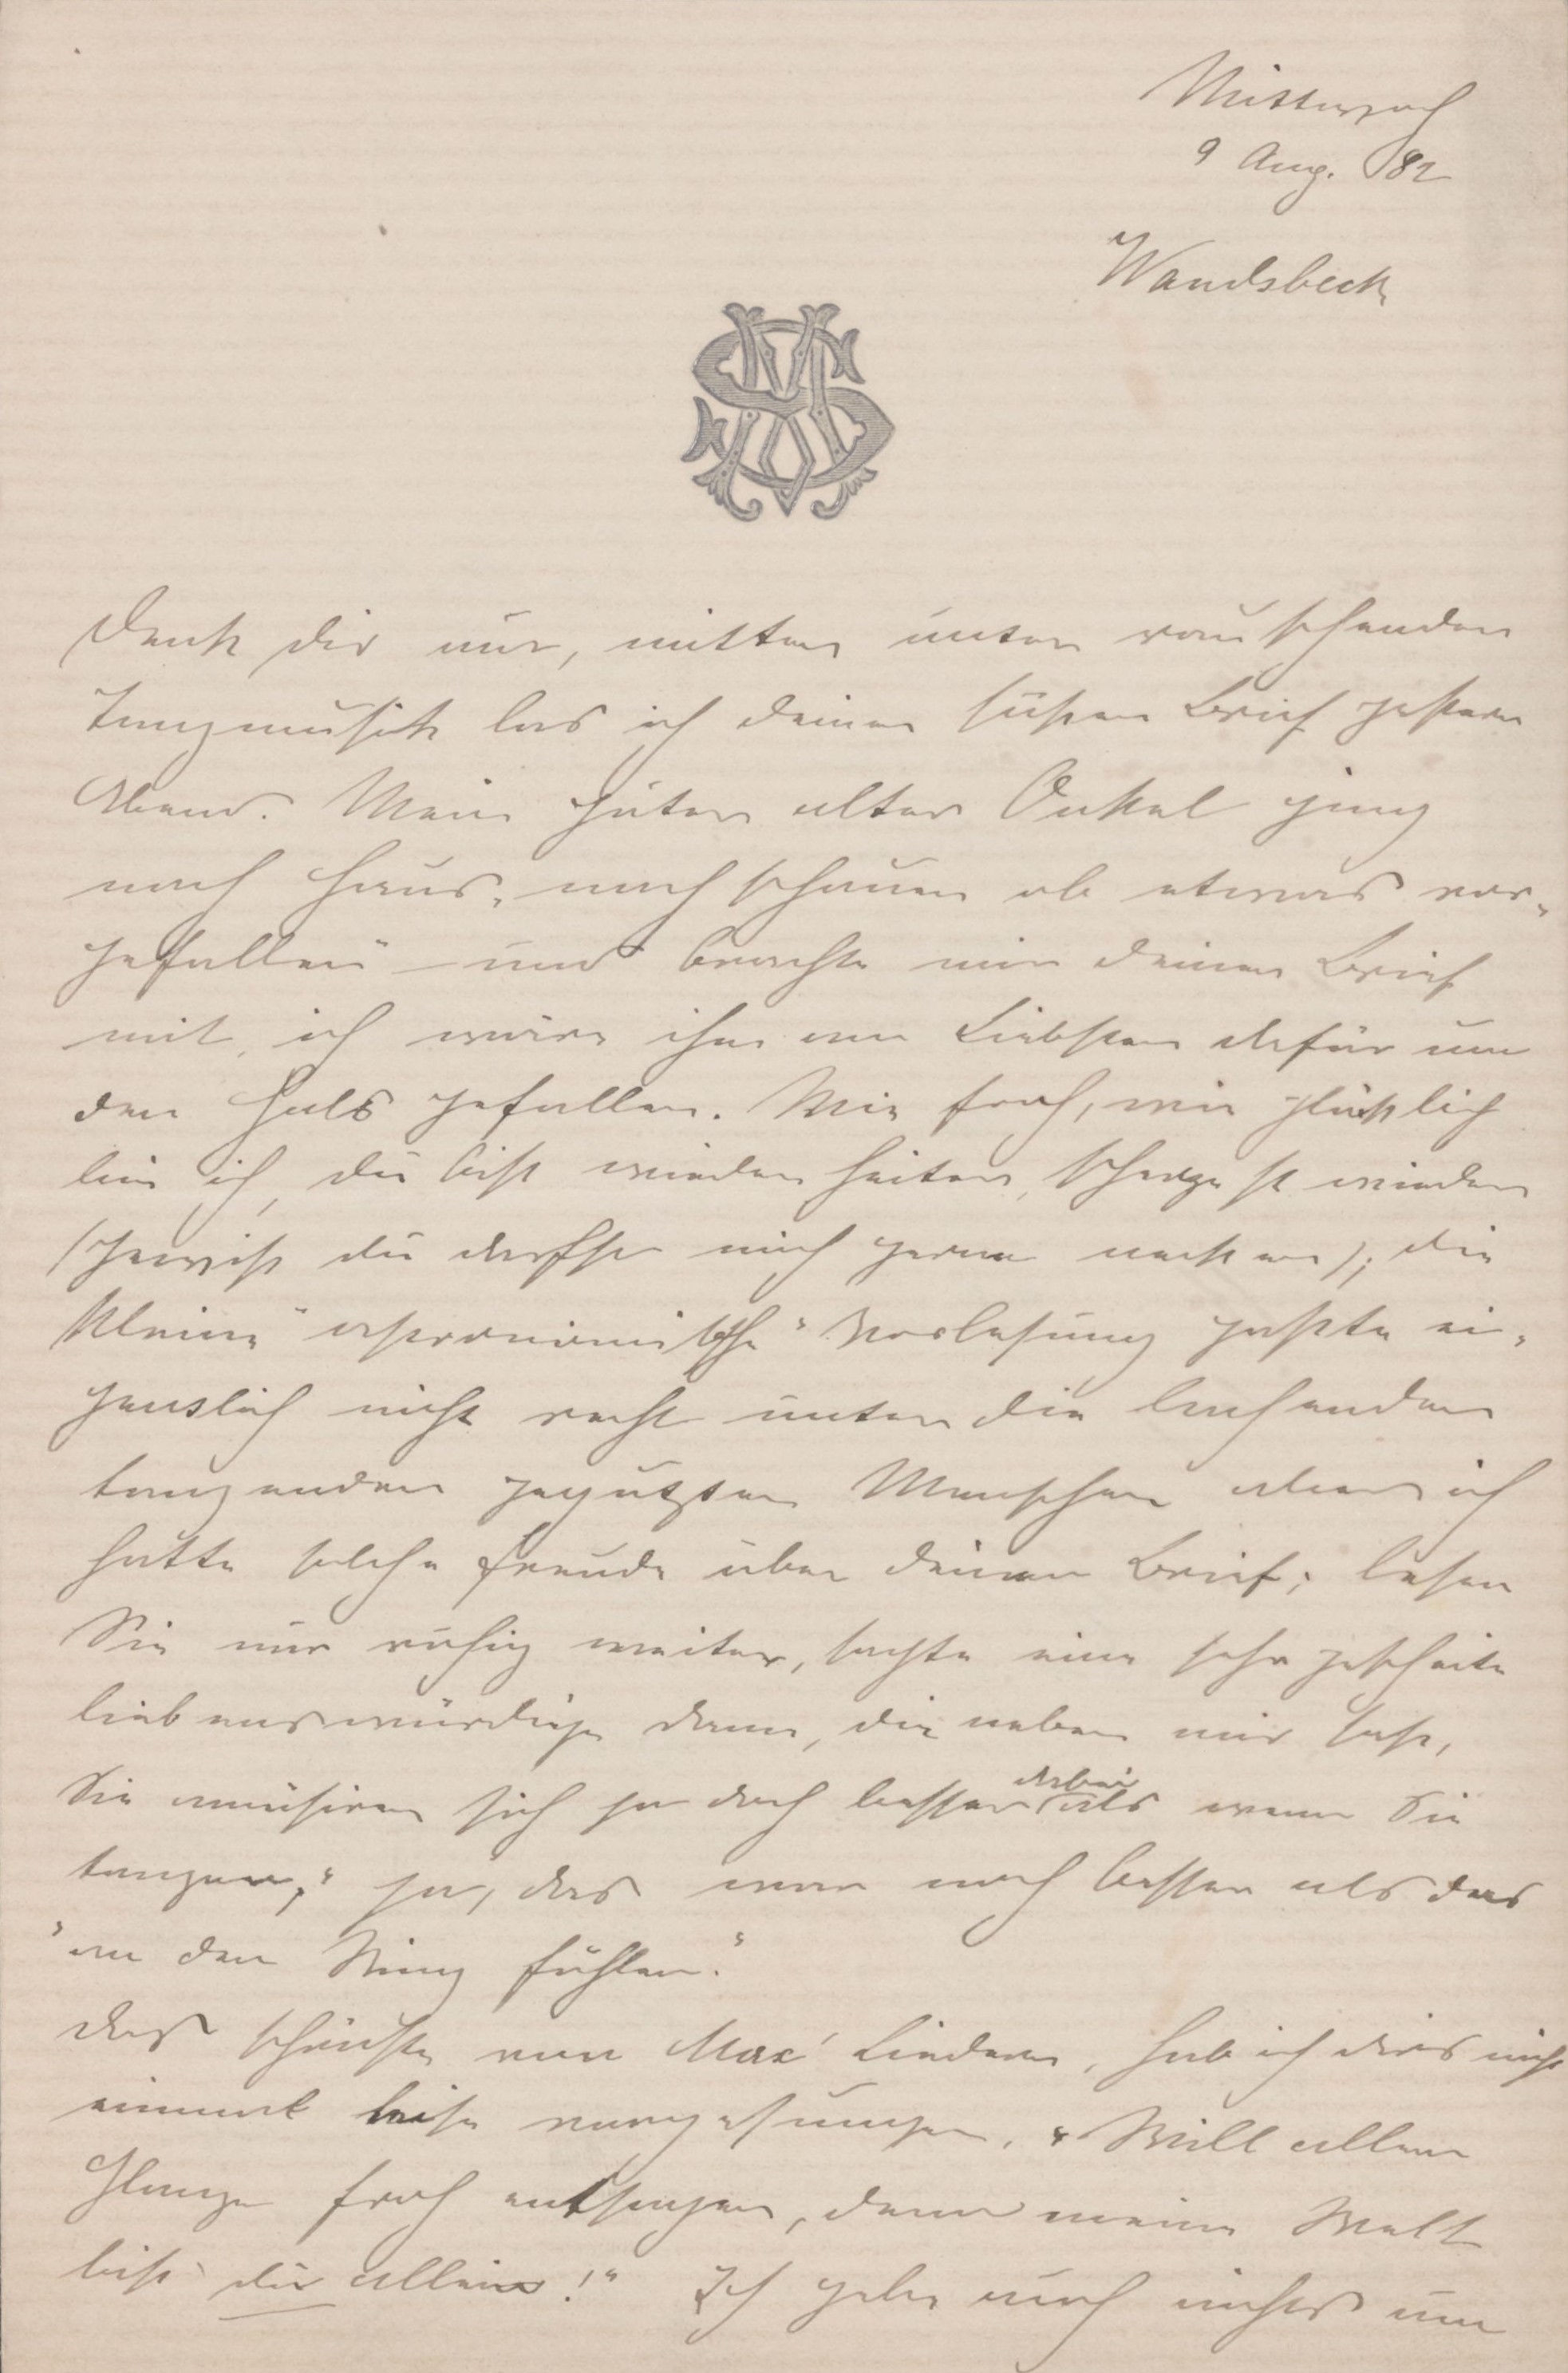 Mittwoch
9 Aug. 82
Wandsbeck
Denk dir nur, mitten unter rauschender
Tanzmusik las ich deinen süßen Brief gestern
Abend. Mein guter alter Onkel ging
nach Haus, nachschauen ob etwas vor-
gefallen" – und brachte mir deinen Brief
mit, ich wäre ihm am Liebsten dafür um
den Hals gefallen. Wie froh, wie glücklich
bin ich, du bist wieder heiter, scherzest wieder
(gewiß du darfst mich gerne necken); die
kleine "astronomische" Vorlesung paßte ei-
gentlich nicht recht unter die lachenden
tanzenden geputzten Menschen aber ich
hatte solche Freude über deinen Brief; lesen
Sie nur ruhig weiter, sagte eine sehr gescheite
liebenswürdige Dame, die neben mir saß,
Sie amüsiren sich ja doch besser dabei als wenn Sie
tanzen," ja, das war noch besser als das
"an den Ring fühlen."
Das schönste von Max' Liedern, hab ich dirs nicht
einmal leise vorgesungen, "Will allem
Glanze froh entsagen, denn meine Welt
bist du allein!" Ich gebe auch nichts um